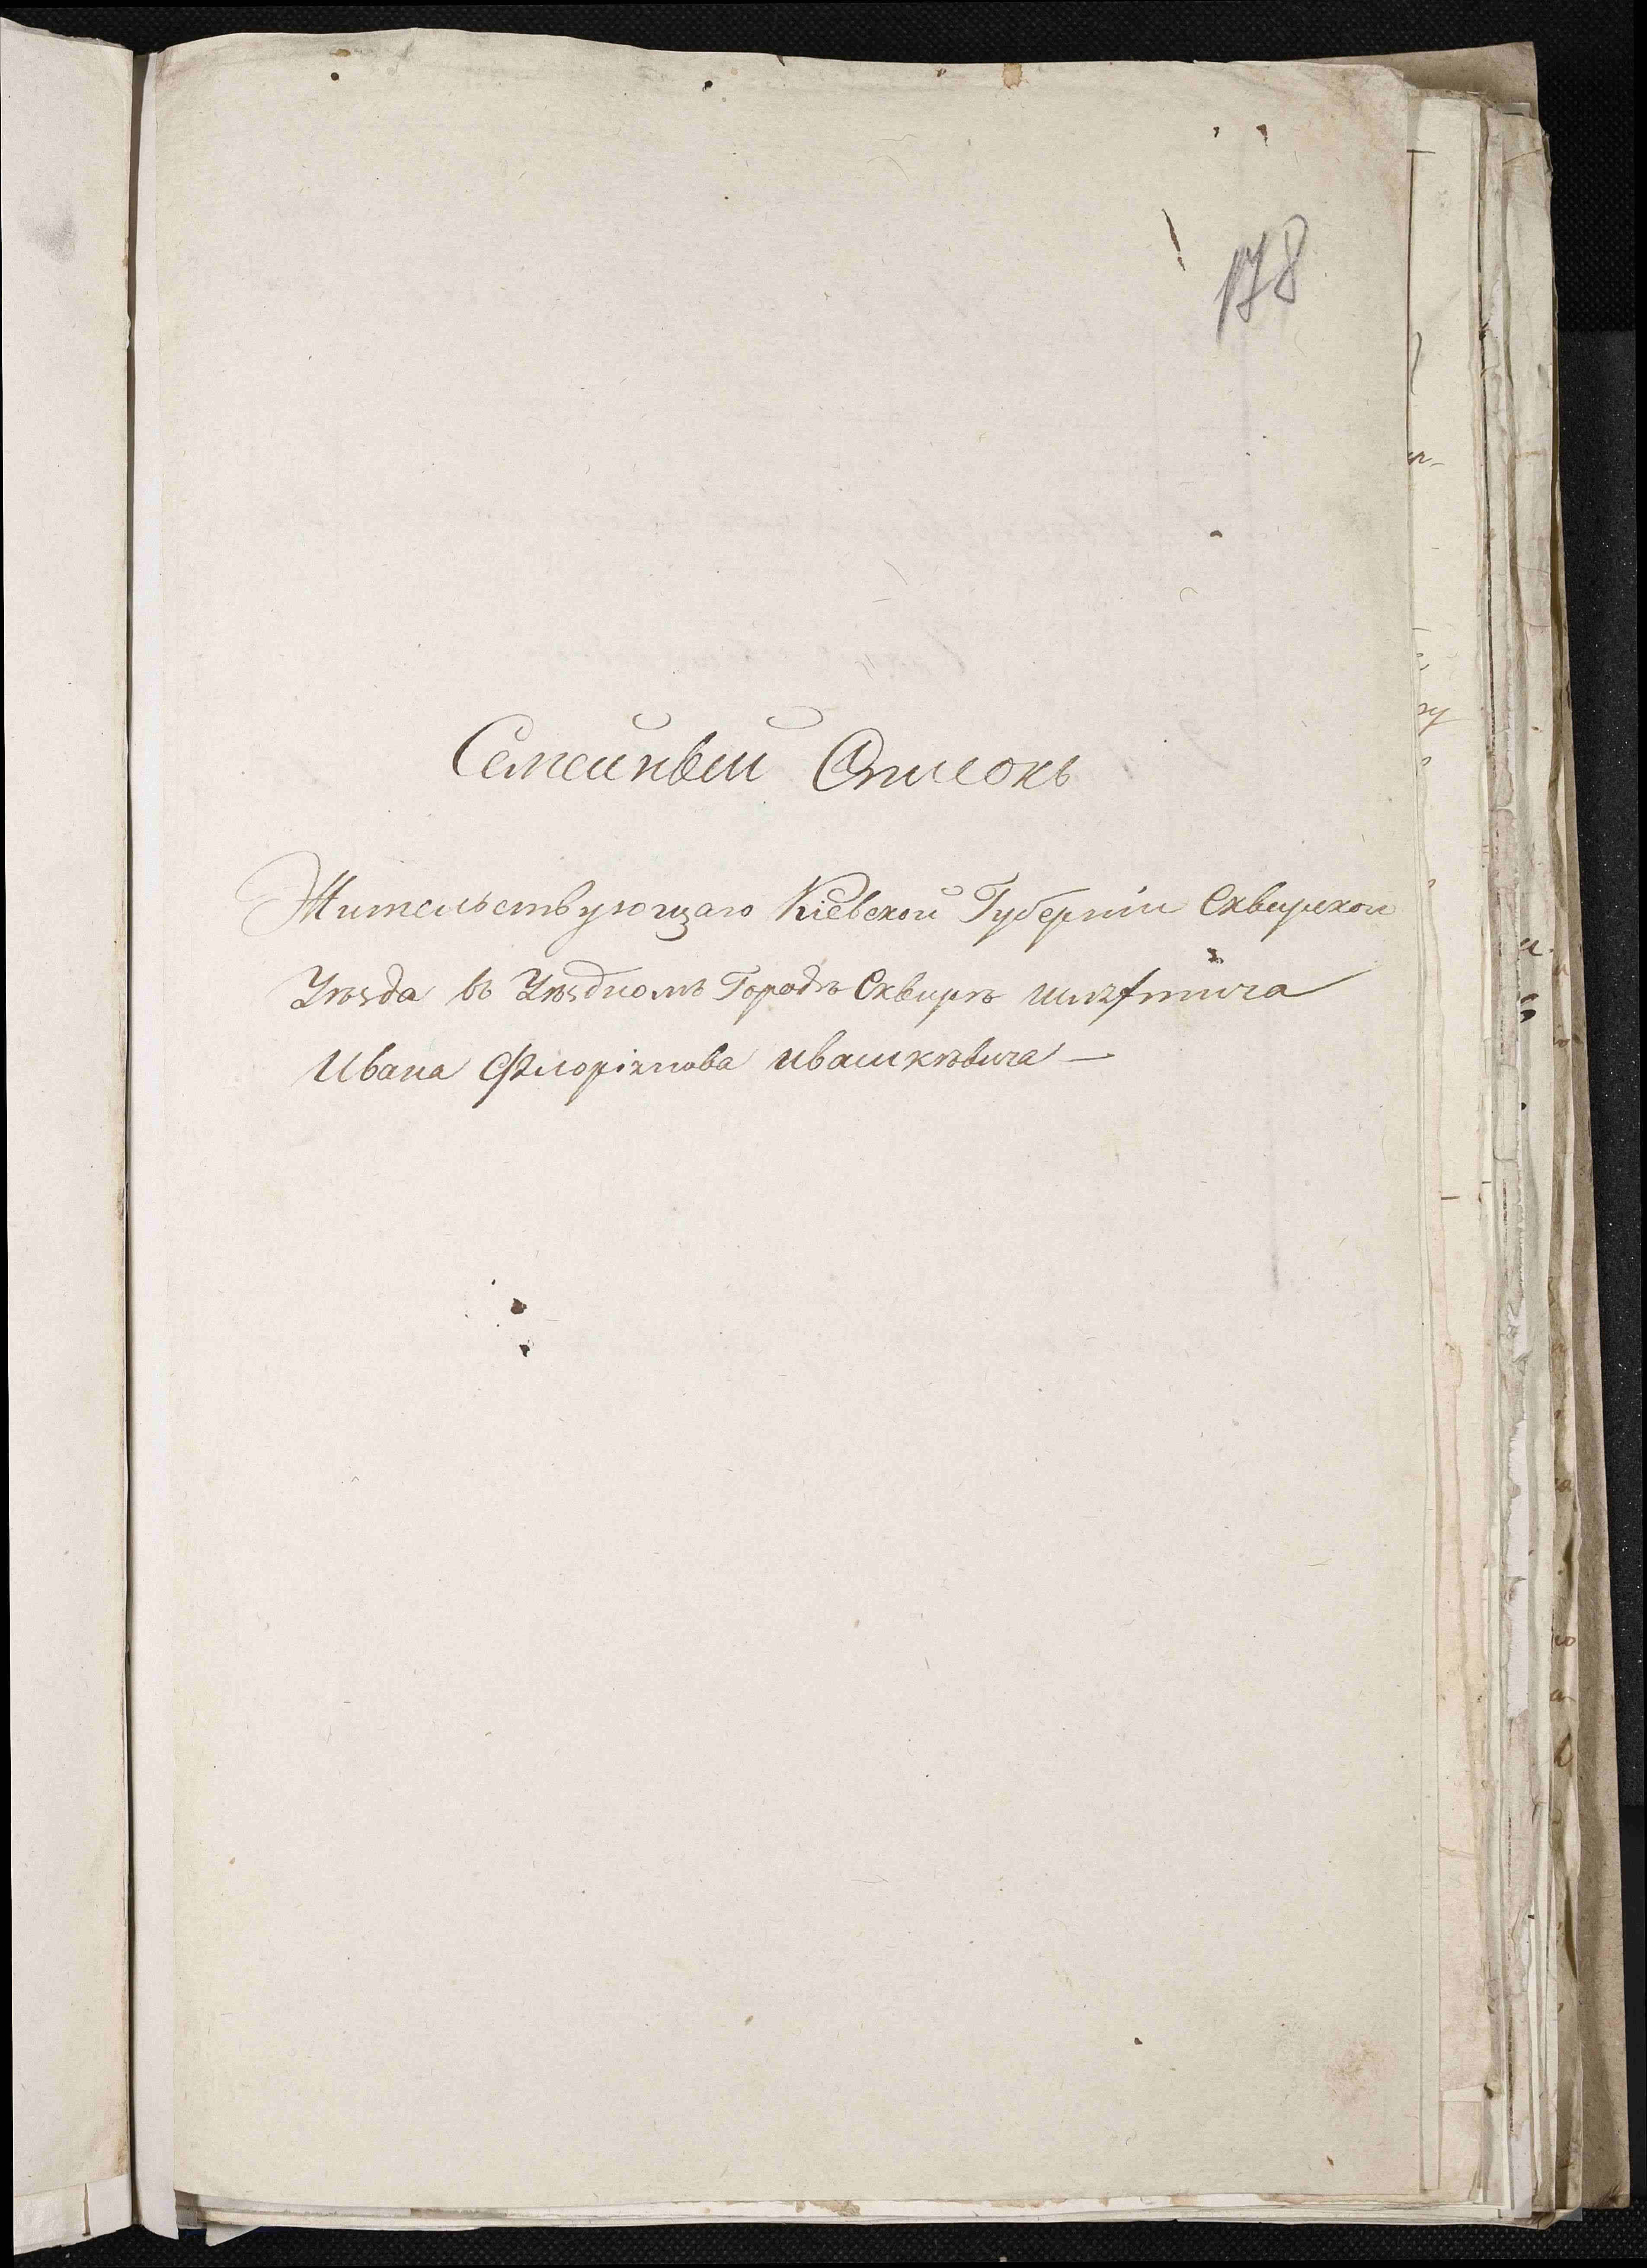 178
Семейный Списокъ
Жительствующаго Кіевской Губерніи Сквирскои
Уѣзда въ Уѣздномъ Городѣ Сквирѣ шляхтича
Ивана Флоріянова Ивашкѣвича —